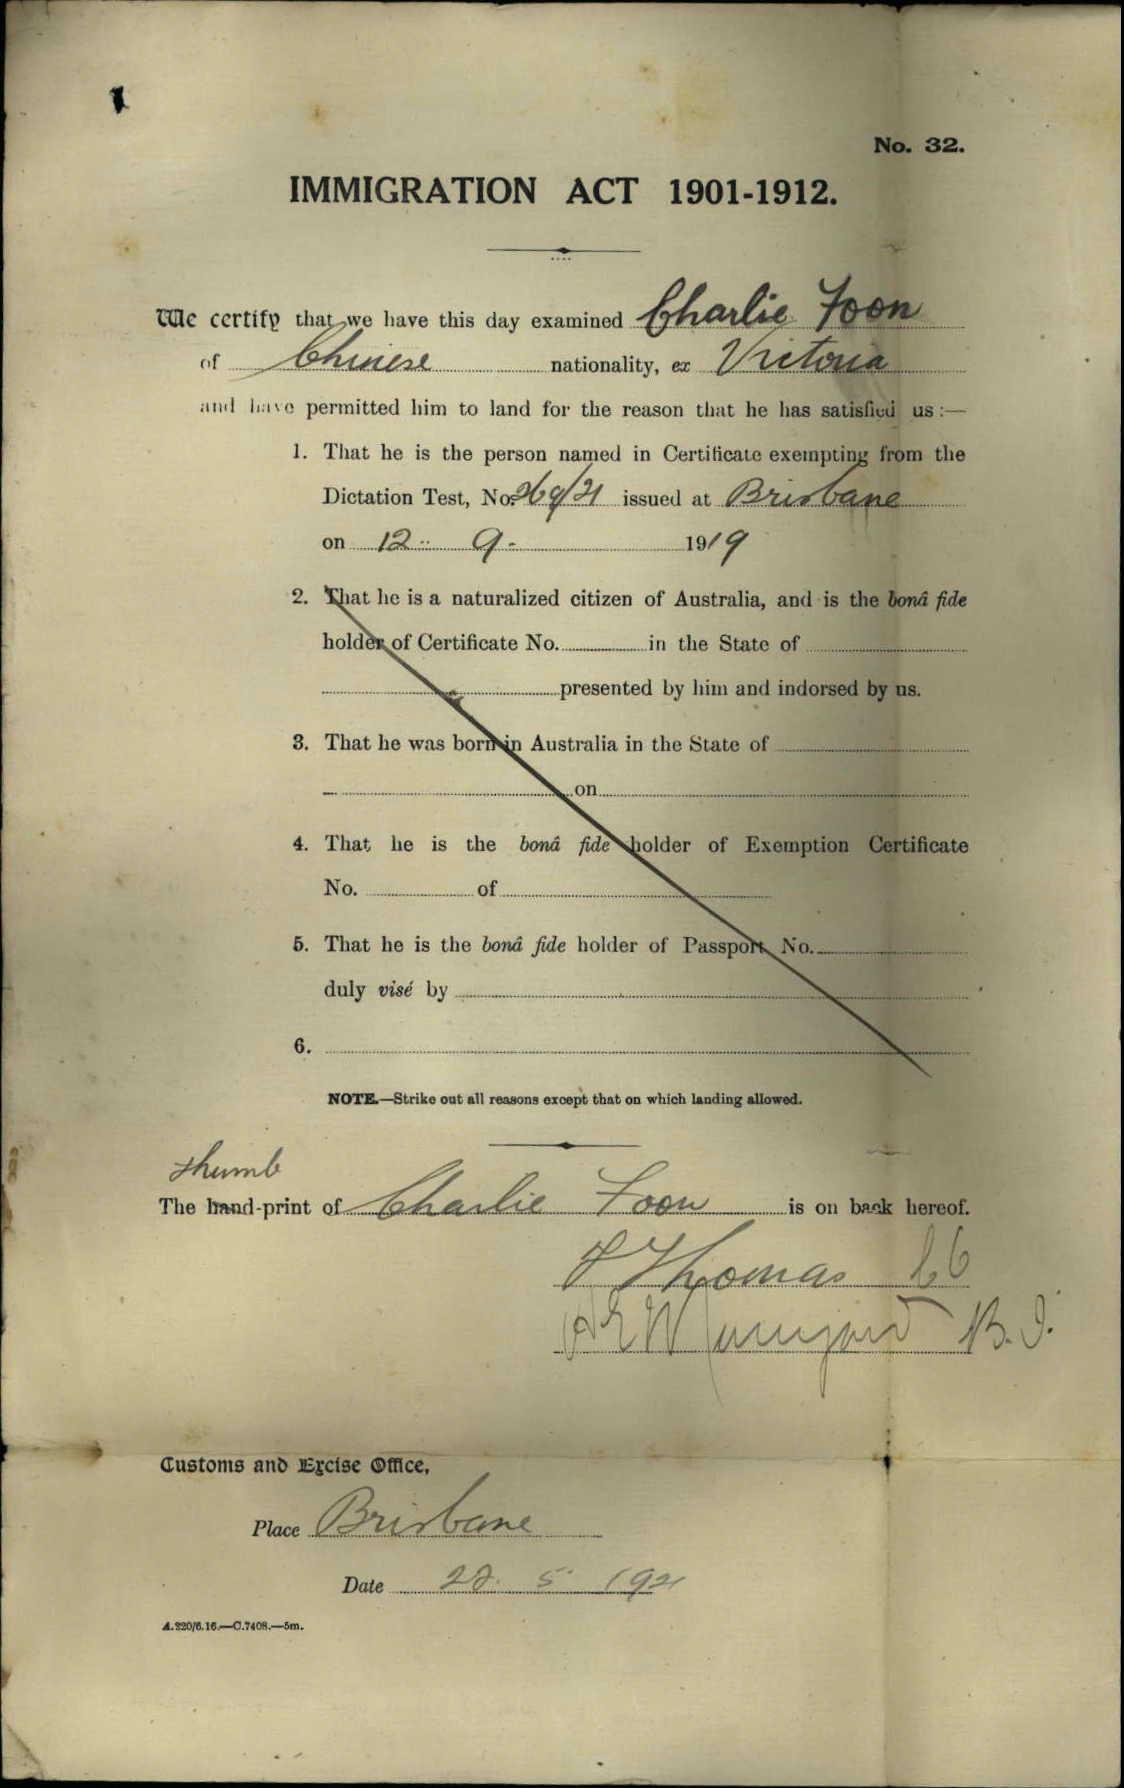 No. 32.
IMMIGRATION ACT 1901-1912.
We certify that we have this day examined Charlie Foon
of Chinese nationality, ex Victoria
and have permitted him to land for the reason that he has satisfied us :—
1. That he is the person named in Certificate exempting from the
Dictation Test, No. 269/21 issued at Brisbane
on 12 . 9 . 1919
2. That he is a naturalized citizen of Australia, and is the bonâ fide
holder of Certificate No. in the State of
presented by him and indorsed by us.
3. That he was born in Australia in the State of
on
4. That he is the bonâ fide holder of Exemption Certificate
No. of
5. That he is the bonâ fide holder of Passport No.
duly visé by
6.
NOTE.—Strike out all reasons except that on which landing allowed.
thumb
The hand-print of Charlie Foon is on back hereof.
Thomas
B. I.
Customs and Excise Office,
Place Brisbane
Date 5 1921
A.220/6.16.—C.7408.—5m.